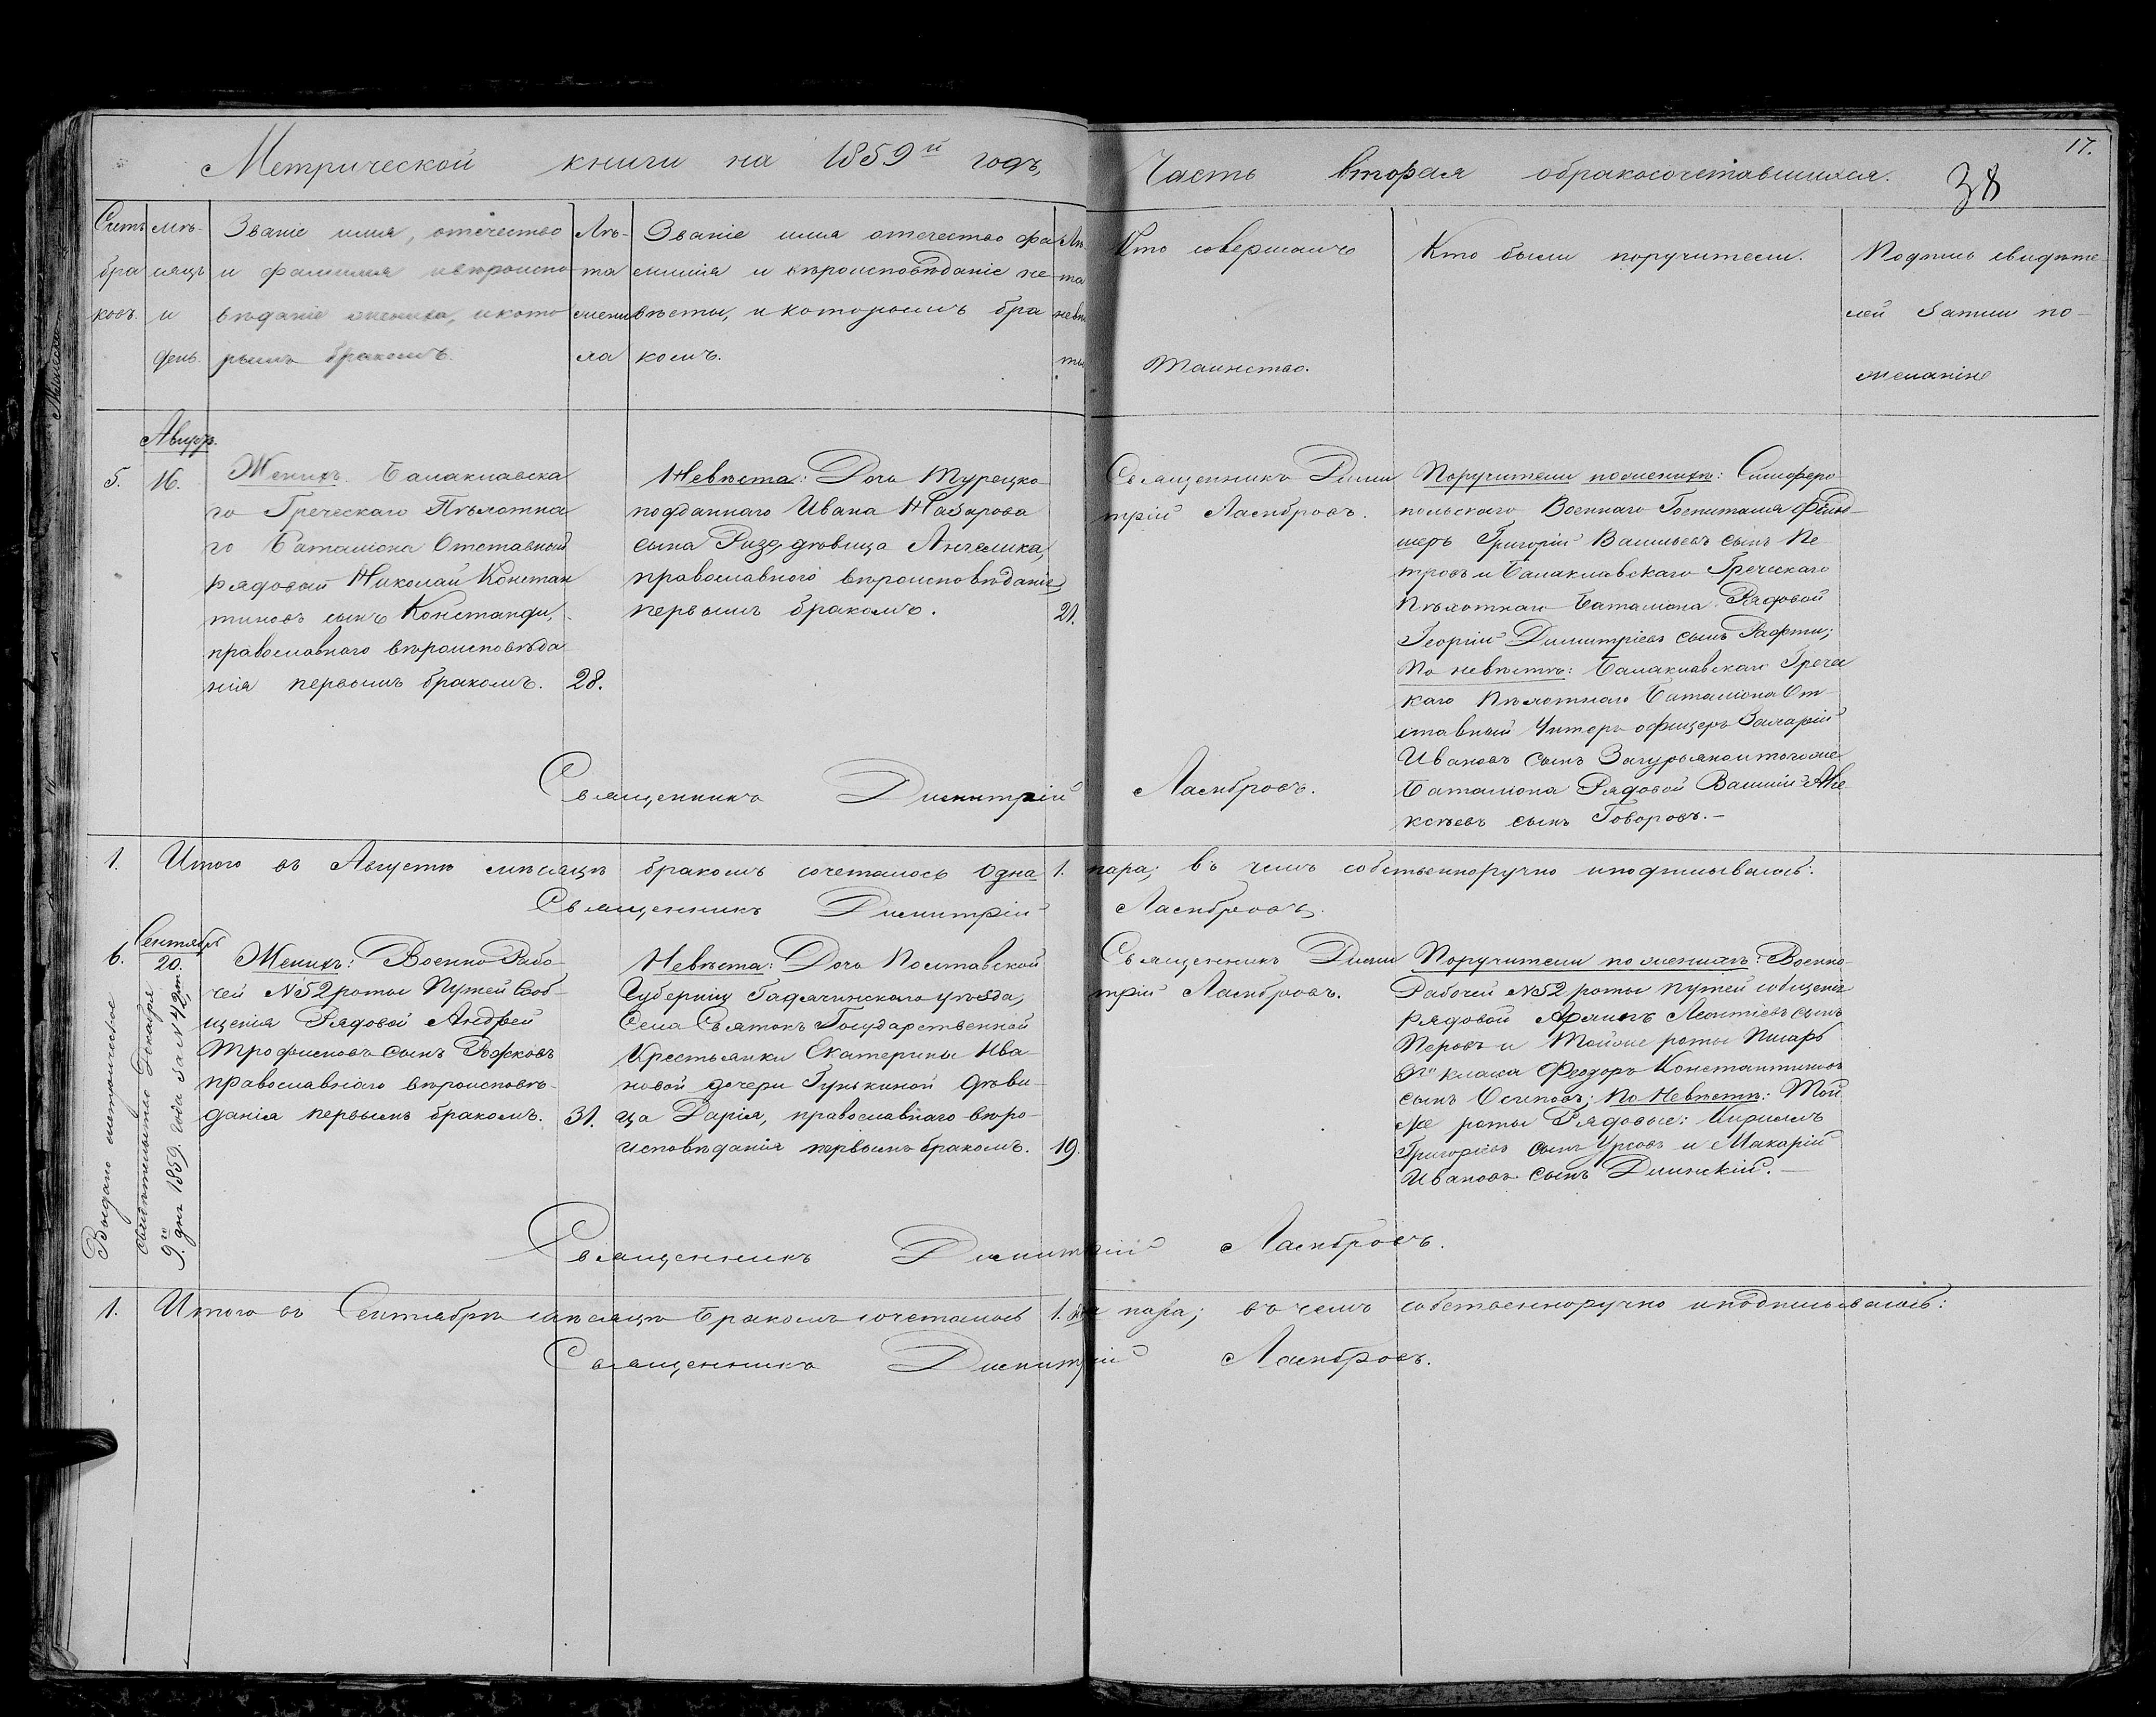 Метрической книги на 1859й годъ,
Часть вторая обракосочетавшихся.
17.
38
Счетъ бра ковъ.
мѣ- сяцъ и день
Званіе имя, отечество
и фамилия и вѣроиспо
вѣданіе жениха, и кото
рымъ бракомъ.
Лѣ-
та
жени
ха
Званіе имя отечество фа
милія и вѣроисповѣданіе не
вѣсты, и которымъ бра
комъ.
Лѣ
та
невѣ
ты
Кто совершалъ
Таинство.
Кто были поручители.
Подпись свидѣте
лей записи по-
желанію
Август.
5.
16.
Женихъ. Балаклавска
го Греческаго Пѣхотна
го Баталіона Отставный
Рядовой Николай Констан
тиновъ сынъ Констанди,
православнаго вѣроисповѣда
нія первымъ бракомъ.
28.
Невѣста: Дочь Турецко
подданнаго Ивана Назарова
сына Ризо, дѣвица Ангелика,
православного вѣроисповѣданіе,
первымъ бракомъ.
21.
Священникъ Дими
трій
Поручители по женихѣ: Симферо
польскаго Военнаго Госпиталя Фельд-
шеръ Григорій Васильевъ сынъ Пе
тровъ и Балаклавскаго Греческаго
Пѣхотнаго Баталіона Рядовой
Георгій Димитріевъ сынъ Рафти;
По невѣстѣ: Балаклавскаго Гречес
каго Пѣхотнаго Баталіона От
ставный Унтеръ офицеръ Захарій
Ивановъ сынъ и того же
Баталіона Рядовой Василій Але
ксѣевъ сынъ Говоровъ.-
Священникъ Димитрій
1. Итого въ Августѣ мѣсяцѣ бракомъ сочеталось Одна 1. пара; въ чемъ собственноручно и подписываюсь:
Священникъ Димитрій
Сентябрь
6.
20.
Женихъ: Военно Рабо-
чей №52 роты Путей Сооб-
щенія Рядовой Андрей
Трофимовъ сынъ Рожковъ
православнаго вѣроисповѣ-
данія первымъ бракомъ.
31.
Невѣста: Дочь Полтавской
Губерніи Гадячинскаго уѣзда,
Села Государственной
Крестьянки Екатерины Ива-
новой дочери Гунькиной дѣви-
ца Дарія, православнаго вѣро-
исповѣданія первымъ бракомъ.
19.
Священникъ Дими
трій
Поручители по женихѣ: Военно
Рабочей №52 роты путей собщенія
Рядовой Леонтіевъ сынъ
Перовъ и Тойже роты Писарь
класса Феодоръ Константиновъ
сынъ Осиповъ; По Невѣстѣ: Той
же роты Рядовые: Кириллъ
Григоріевъ сынъ Урсовъ и Макарій
Ивановъ сынъ Длинскій.-
Выдано метрическое
свидѣтельство Декабря
9го дня 1859. года за №42м
Священникъ Димитрій
1. Итого въ Сентябрѣ мѣсяцѣ бракомъ сочеталось 1. пара; въ чемъ собственноручно и подписываюсь:
Священникъ Димитрій